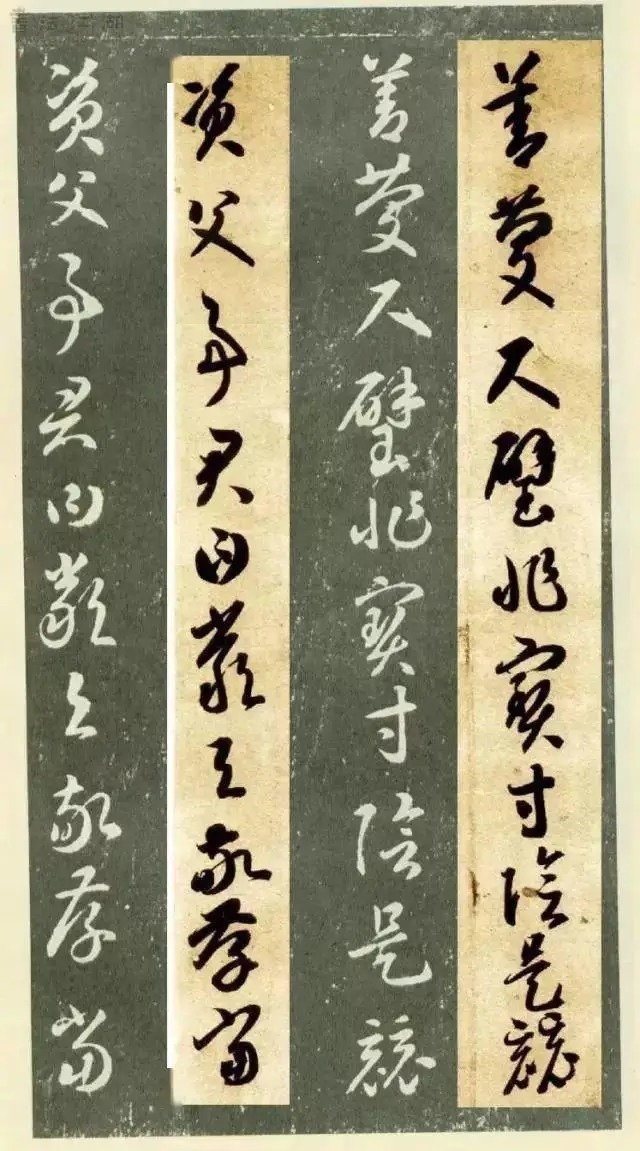 善慶尺璧非寶寸陰是競
善慶尺璧非寶寸陰是競
資父事君曰嚴與敬孝當
資父事君曰嚴與敬孝當
書法江湖